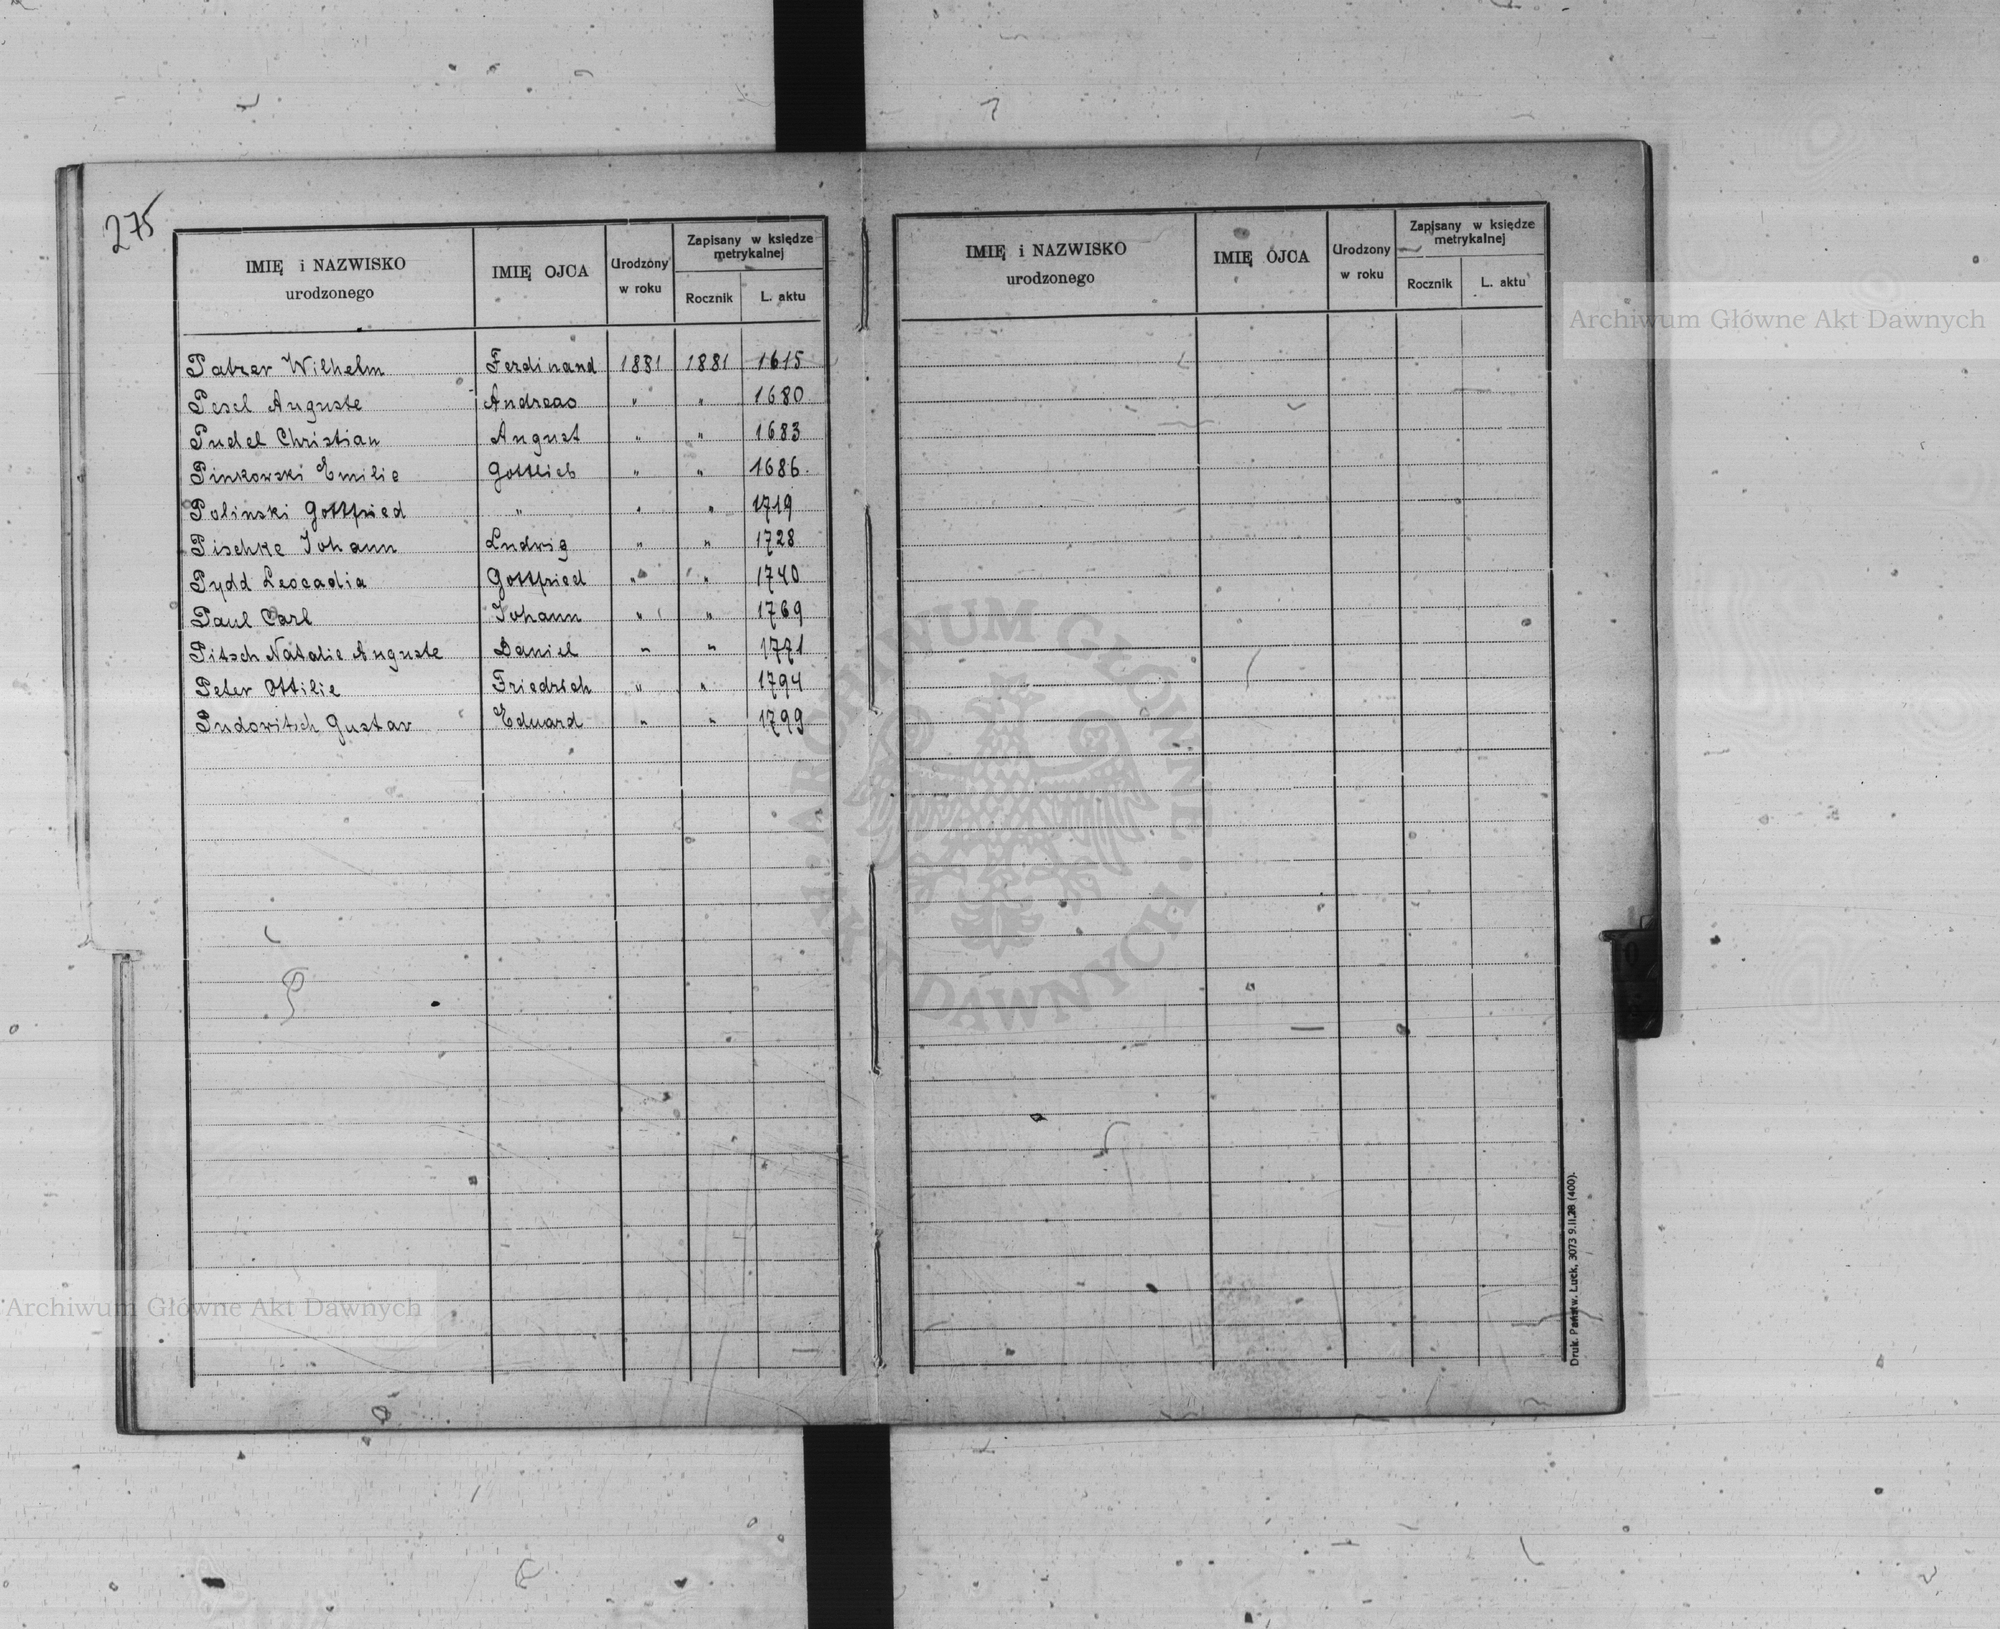 275
IMIĘ i NAZWISKO urodzonego | IMIĘ OJCA | Urodzony w roku | Zapisany w księdze metrykalnej | Rocznik | L. aktu
Patzer Wilhelm | Ferdinand | 1881 | 1881 | 1615
Pesel Auguste | Andreas | " | " | 1680
Pudel Christian | August | " | " | 1683
Pinkowski Emilie | Gottlieb | " | " | 1686
Polinski Gottfried | " | " | " | 1719
Pischke Johann | Ludwig | " | " | 1728
Pydd Leocadia | Gottfried | " | " | 1740
Paul Carl | Johann | " | " | 1769
Pitsch Natalie Auguste | Daniel | " | " | 1771
Peter Ottilie | Friedrich | " | " | 1794
Pudowitsch Gustav | Eduard | " | " | 1799
IMIĘ i NAZWISKO urodzonego | IMIĘ OJCA | Urodzony w roku | Zapisany w księdze metrykalnej | Rocznik | L. aktu
Druk. Państw. Łuck, 3073 9.II.28 (400).
Archiwum Główne Akt Dawnych
Archiwum Główne Akt Dawnych
ARCHIWUM GŁÓWNE AKT DAWNYCH